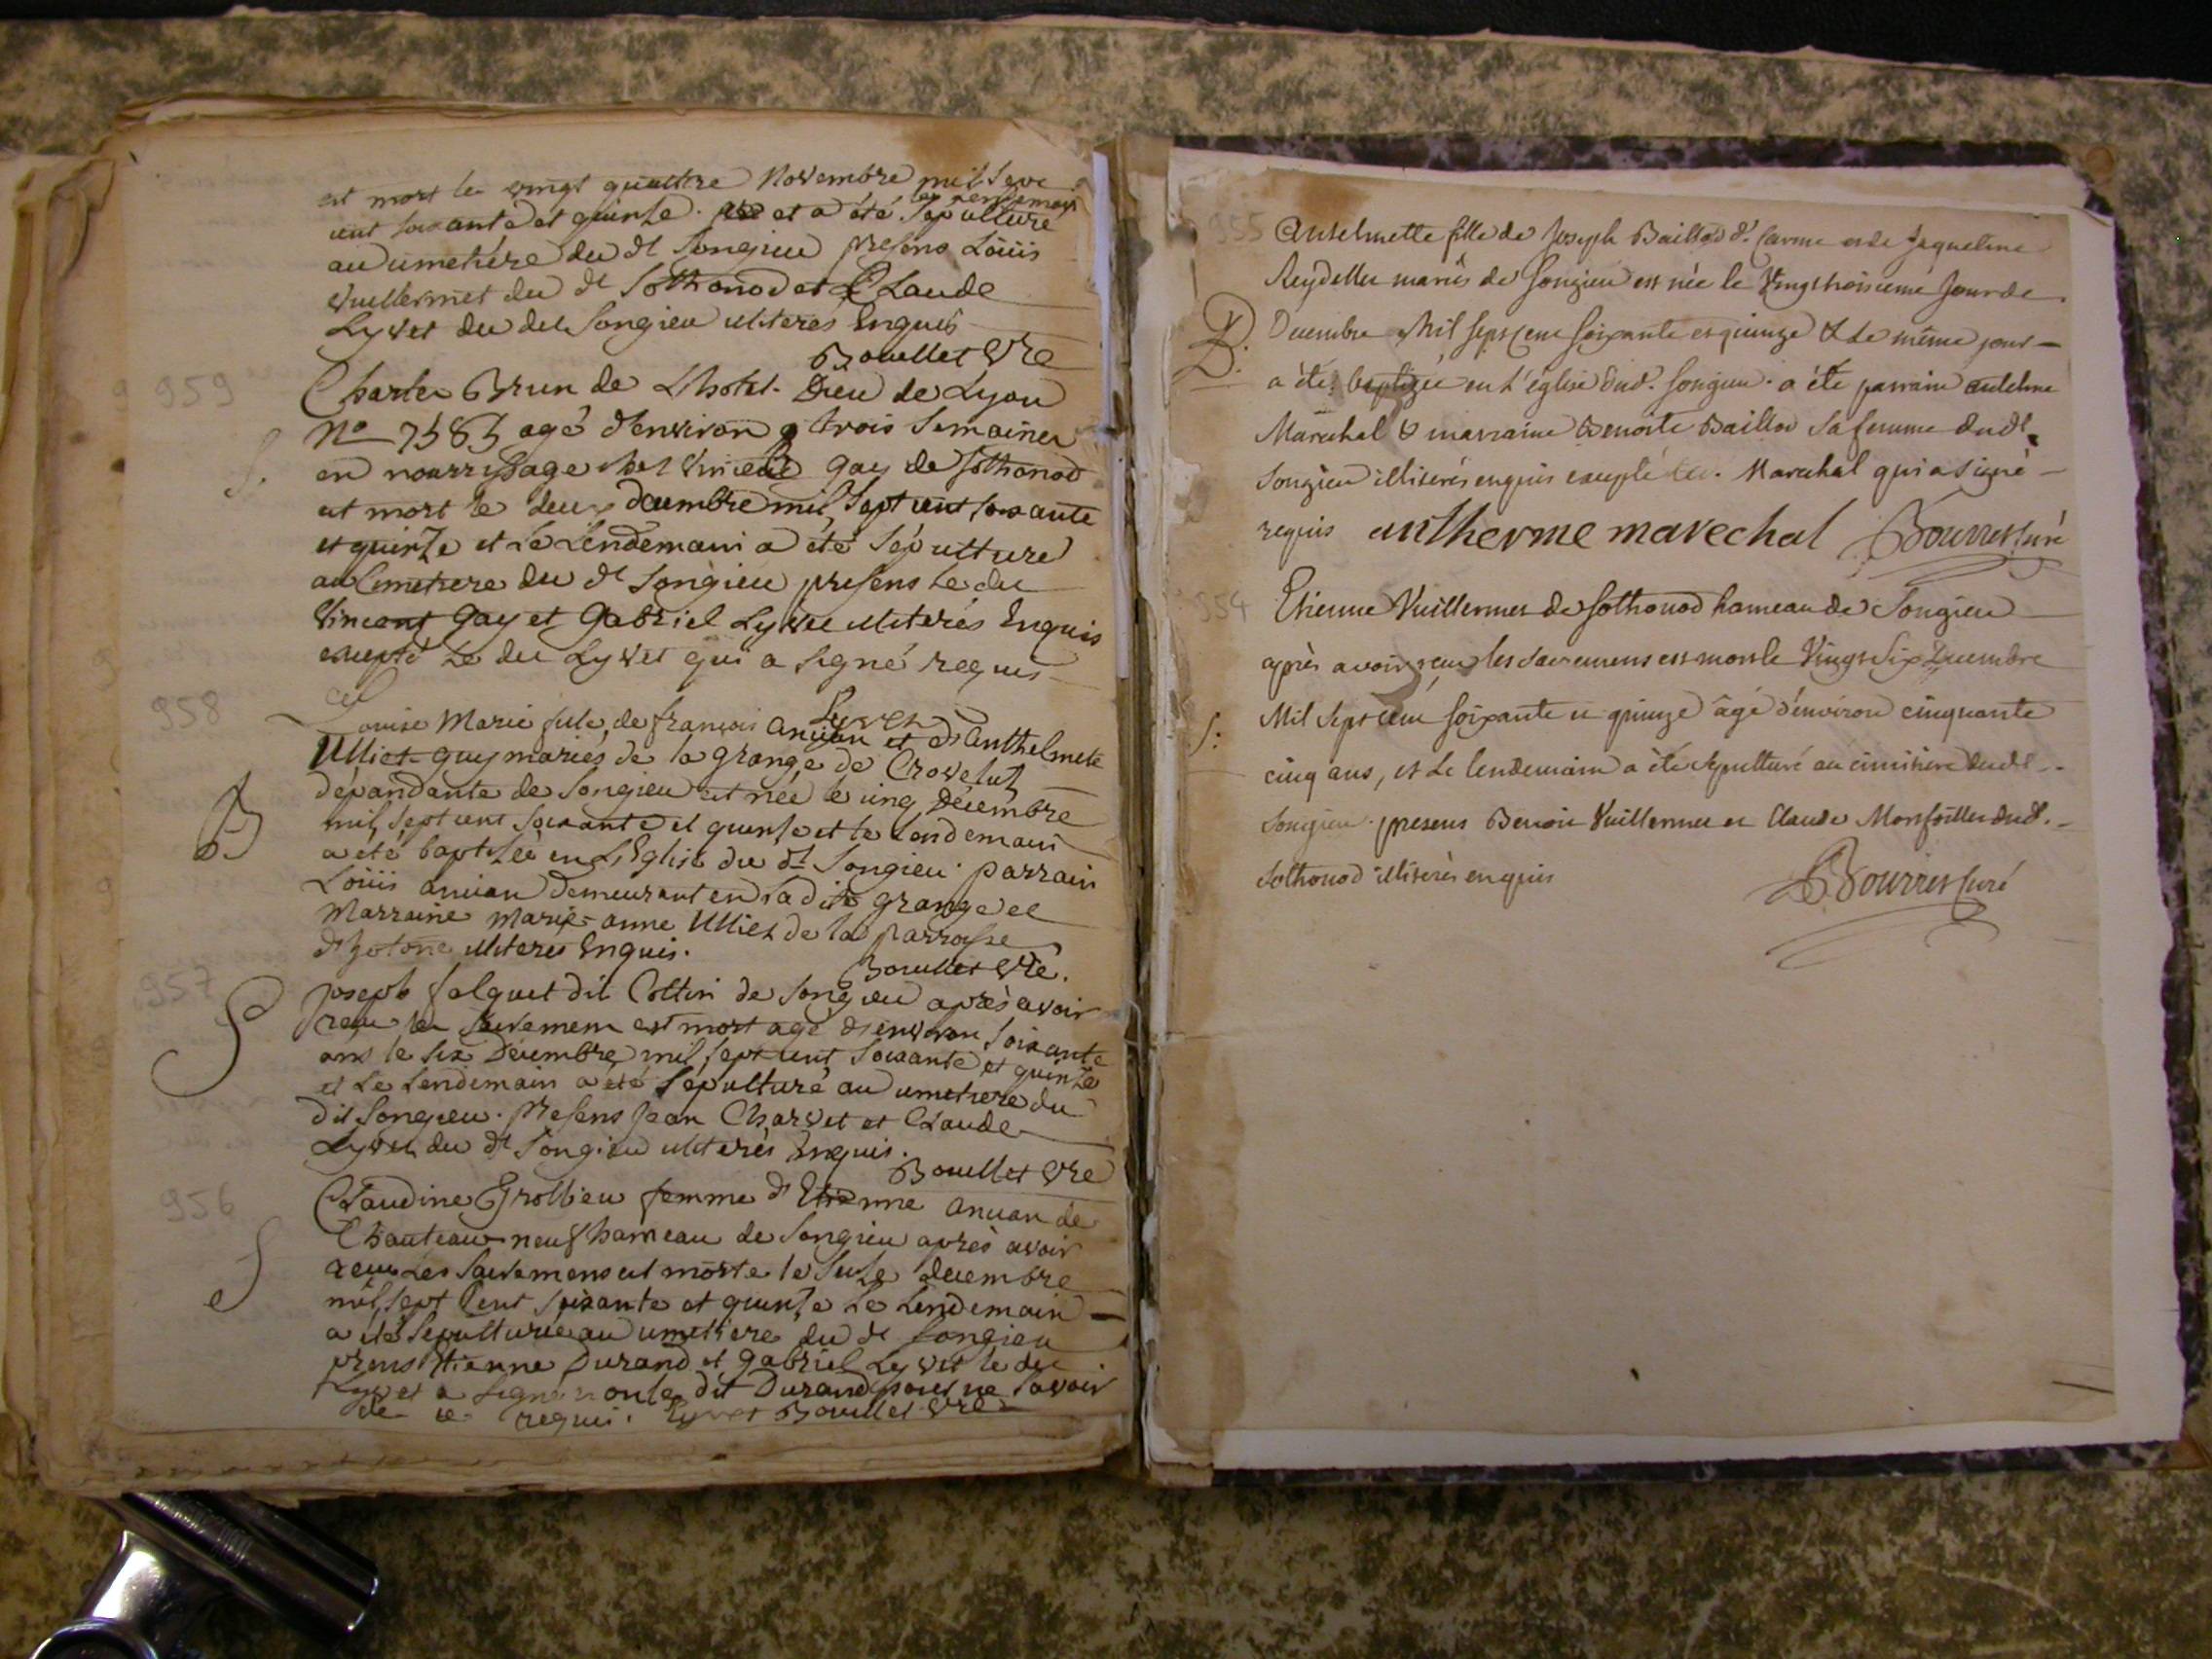 est mort le vingt quattre Novembre mil sept
cent soixante et quinse. et a été sepulturé
le lendemain
au cimetiere du dt Songieu presens Loüis
Vuillermet du dt Sothonod et Claude
Lyvet du det Songieu illiterés Enquis
Boullet Vre
959
Charles Brun de L'hotel-Dieu de Lyon
No 7585 agé d'environ trois Semaines
S.
en nourrissage chez Vincent Gay de Sothonod
est mort le deux decembre mil sept cent soixante
et quinze et Le Lendemain a été sépulturé
au Cimetiere du dt Songieu presens Le du
Vincent Gay et Gabriel Lyvet illiterés Enquis
excepté Le du Lyvet qui a signé requis
Lyvet
958
Louise Marie fille de françois ancian et d'anthelmete
Ulliet-guy mariés de la grange de Crovelut
dépandante de Songieu est née le cinq Décembre
B
mil sept cent soixante et quinse et le Lendemain
a eté baptisée en L'Eglise du dt Songieu. parrain
Loüis ancian demeurant en la dite grange et
Marraine Marie-anne Ulliet de la parroisse
d'hotone illiteres Enquis.
Boullet Vre.
957
S
Joseph falquet dit Cottin de Songieu après avoir
recu les sacremens est mort agé d'environ soixante
ans le six Décembre mil sept cent soixante et quinze
et Le Lendemain a été sépulturé au cimetiere du
dit Songieu. presens Jean Charvet et Claude
Lyvet du dt Songieu illiterés Enquis.
Boullet Vre
956
Claudine Grollieu femme d'Etienne ancian de
Chauteau-neuf hameau de Songieu après avoir
S
recu Les sacremens est morte le seize decembre
mil sept Cent soixante et quinze Le Lendemain
a été sepulturée au cimetiere du dt Songieu
prens Etienne Durand et Gabriel Lyvet le du
Lyvet a signé non le dit Durand pour ne savoir
de ce requis. Lyvet Boullet Vre
955
Anselmette fille de Joseph Baillod d. Carme et de Jaqueline
Reydellet mariés de Songieu est née le Vingt troisieme Jour de
B.
Decembre Mil sept Cent soixante et quinze & Le même jour
a été baptizée en L'église dud. Songieu. a été parrain antelme
Marechal & marraine Benoite Baillod sa femme dudt
Songieu illiterés enquis excepté led. Marechal qui a signé
requis antherme marechal Bourret Curé
954
Etienne Vuillermet de Sothonod hameau de Songieu
après avoir reçu les Sacremens est mort le Vingt Six Decembre
S:
Mil Sept cent soixante et quinze âgé d'environ cinquante
cinq ans, et Le lendemain a été sepulturé au cimitière dudt
Songieu. presens Benoit Vuillermet et Claude Monfoillet dud.
Sothonod illiterés enquis
Bourret Curé